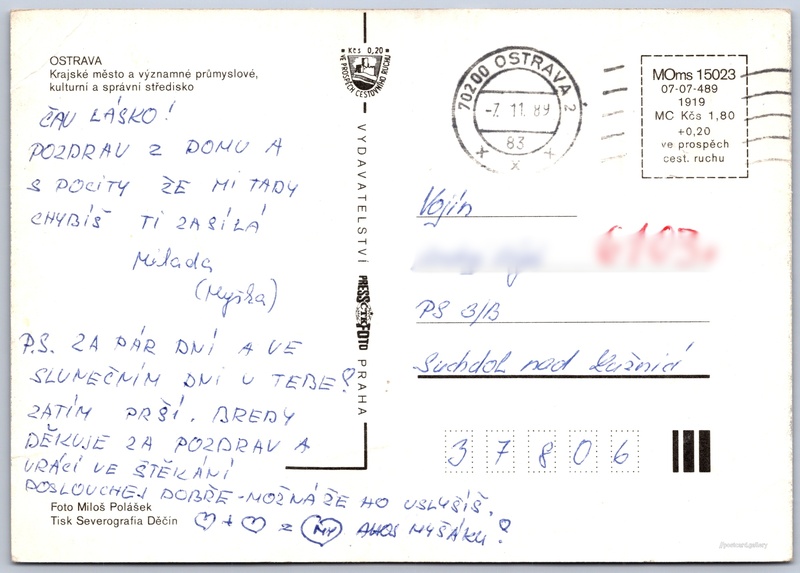 OSTRAVA
Krajské město a významné průmyslové,
kulturní a správní středisko
ČAU LÁSKO!
POZDRAV Z DOMU A
S POCITY ŽE MI TADY
CHYBÍŠ TI ZASÍLÁ
Milada
(Myška)
P.S. ZA PÁR DNÍ A VE
SLUNEČNÍM DNI U TEBE?
ZATÍM PRŠÍ. BREDY
DĚKUJE ZA POZDRAV A
VRÁCÍ VE ŠTĚKÁNÍ
POSLOUCHEJ DOBŘE - MOŽNÁ ŽE HO USLYŠÍŠ.
♡ + ♡ = MY AHOJ MYŠÁKU!
Foto Miloš Polášek
Tisk Severografia Děčín
Kčs 0,20
VE PROSPĚCH CESTOVNÍHO RUCHU
VYDAVATELSTVÍ PRESSFOTO PRAHA
ČTK
70200 OSTRAVA 2
-7. 11. 89
83
MOms 15023
07-07-489
1919
MC Kčs 1,80
+0,20
ve prospěch
cest. ruchu
Vojín
6103
PS 3/B
Suchdol nad Lužnicí
37806
//postcard.gallery